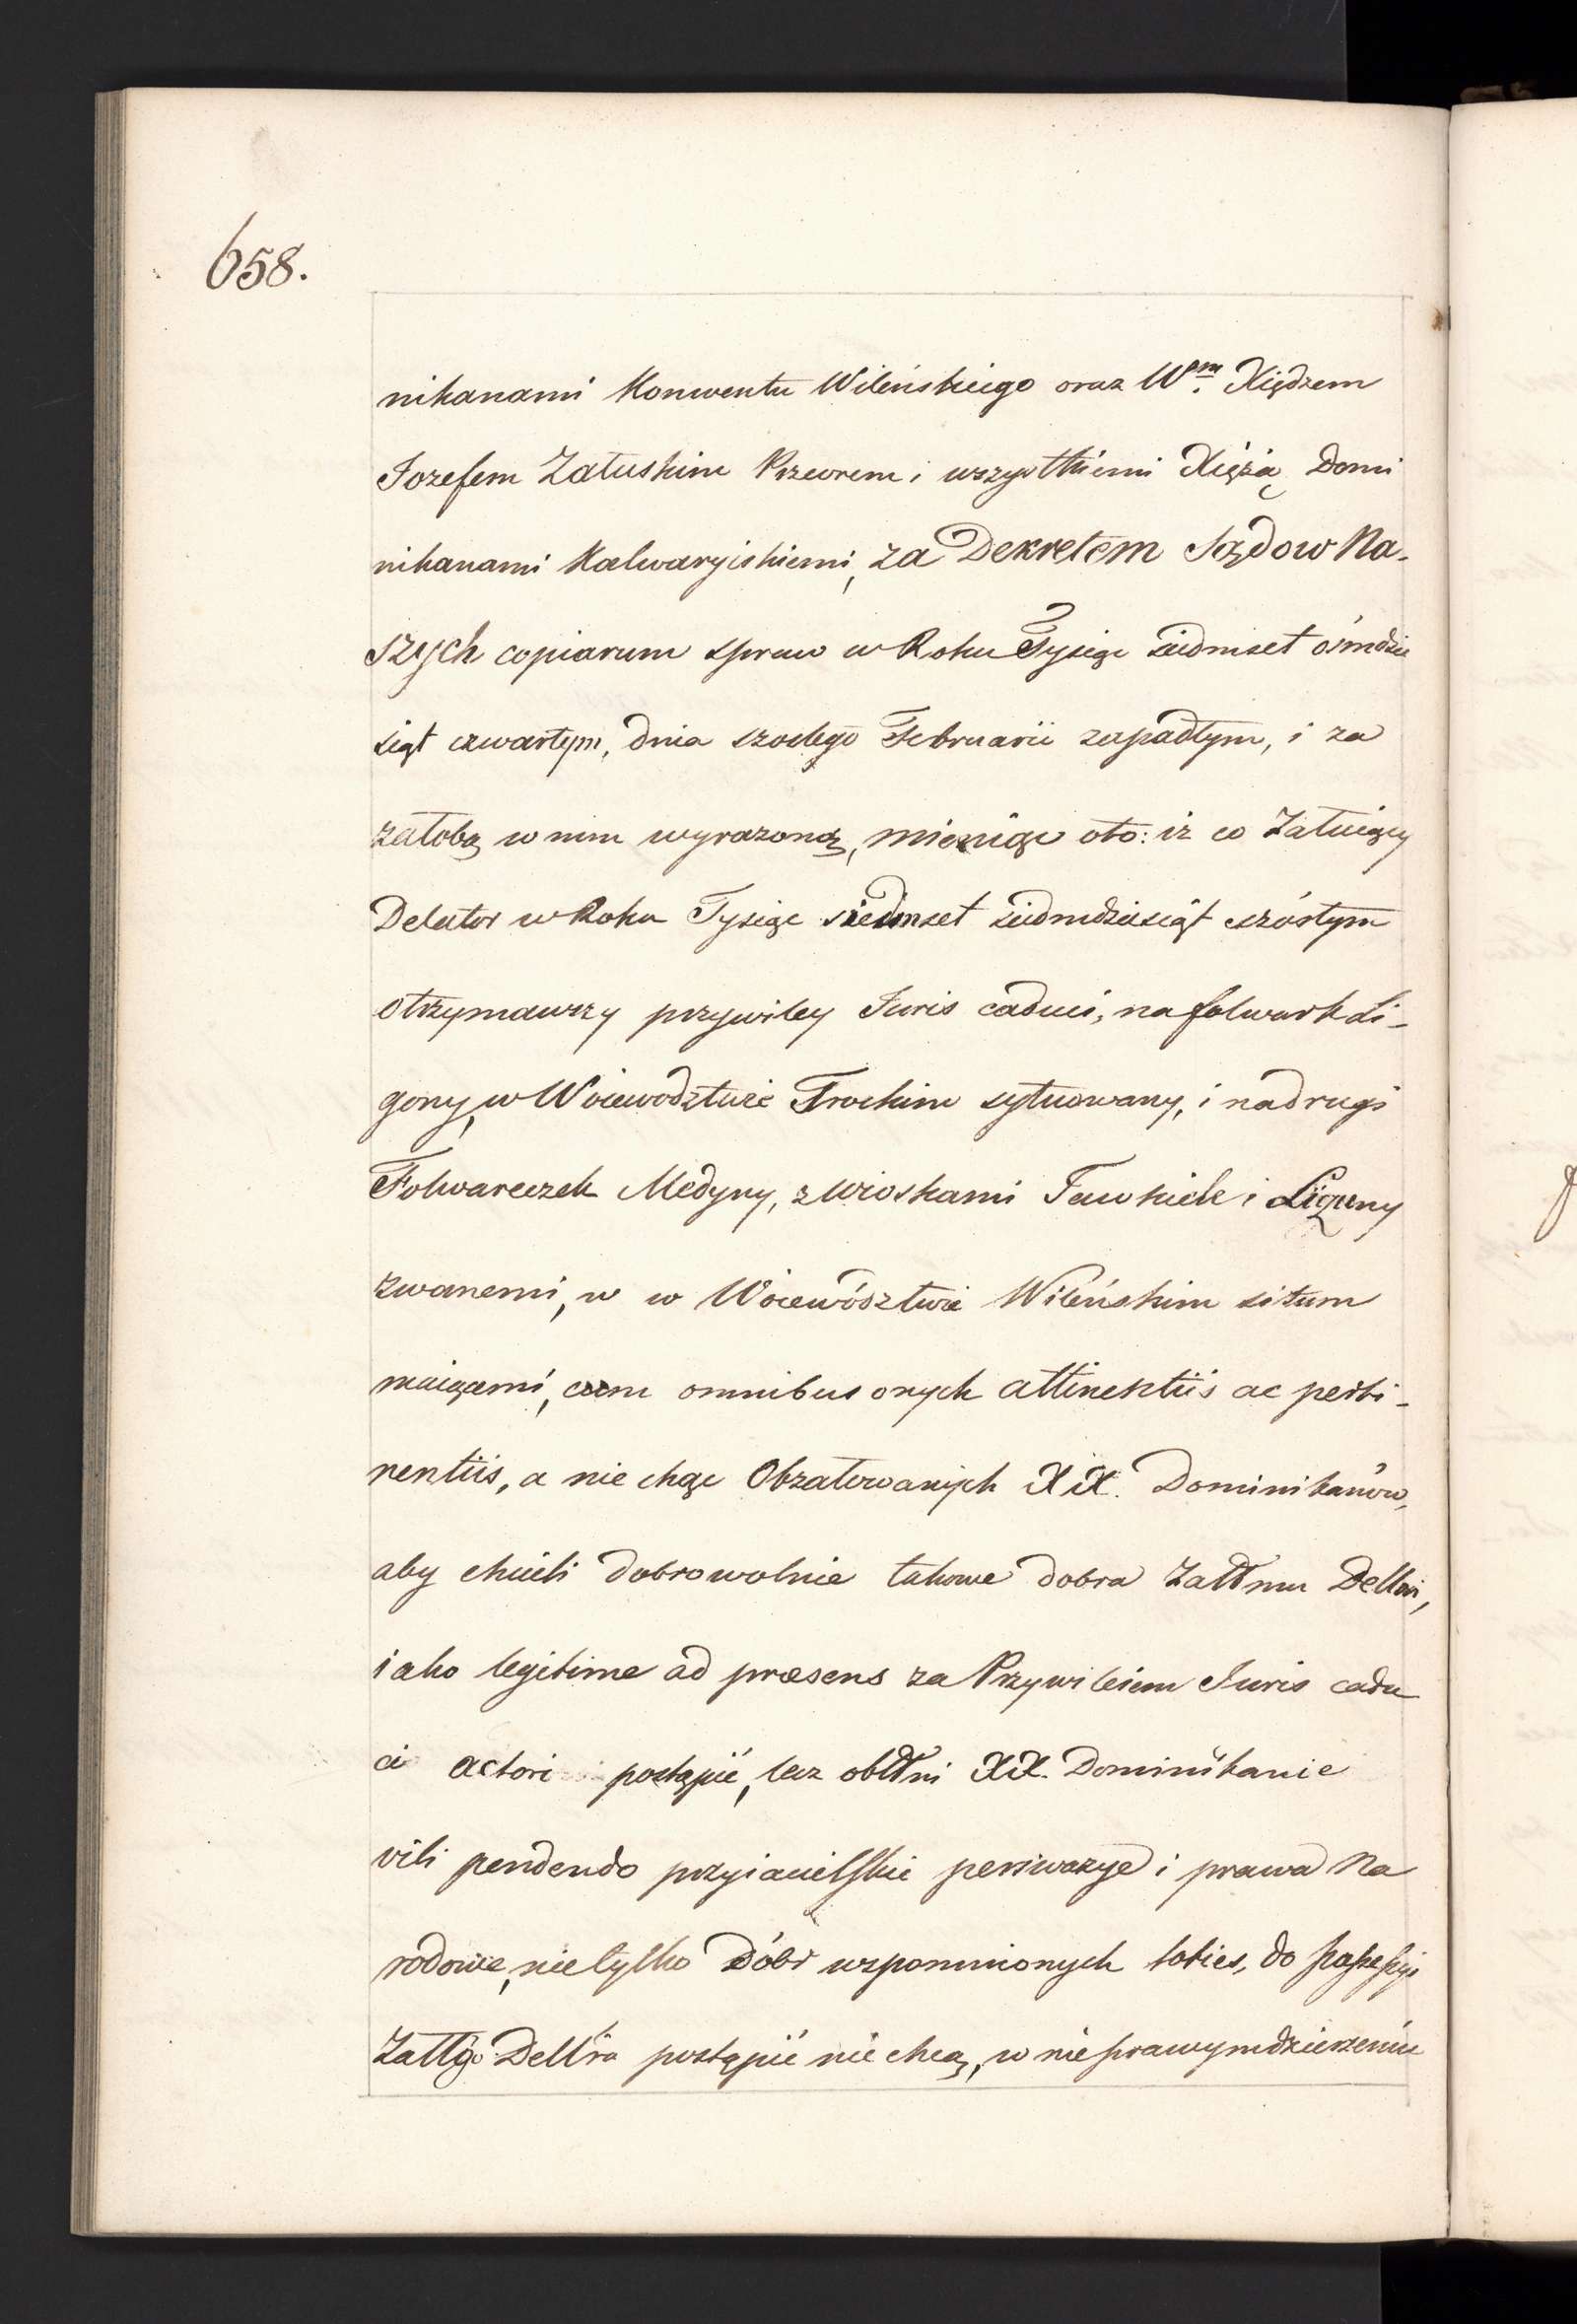 658.
nikanami Konwentu Wileńskiego oraz W.m Xiędzem
Jozefem Załuskim Przeorem i wszystkiemi Xiężą Domi
nikanami Kalwaryiskiemi, za Dekretem Sądow Na-
szych copiarum spraw w Roku Tysiąc siedmset ośmdzie
siąt czwartym, dnia szostego Februarii zapadłym, i za
żałobą w nim wyrażoną, mieniąc oto: iż co Żałuiący
Delator w Roku Tysiąc siedmset siedmdziesiąt szóstym
otrzymawszy przywiley Juris caduci, na folwark Li-
gony, w Woiewodztwie Trockim sytuowany, i na drugi
Folwareczek Medyny, z wioskami Tawkiele i Liguny
zwanemi, w w Woiewództwie Wileńskim situm
maiącemi, cum omnibus onych attinentiis ac perti-
nentiis, a nie chąc Obżałowanych XX. Dominikanów,
aby chcieli dobrowolnie takowe dobra Żałł̃mu Delłowi,
iako legitime ad præsens za Przywileiem Juris cadu
ci actori postąpić, lecz obłł̃ni XX. Dominikanie
vili pendendo przyiacielskie perswazye i prawa Na
rodowe, nie tylko Dóbr wspomnionych toties, do possessyi
Żałłgo Delł̃ra postąpić nie chcą, w nieprawym dzierżeniu